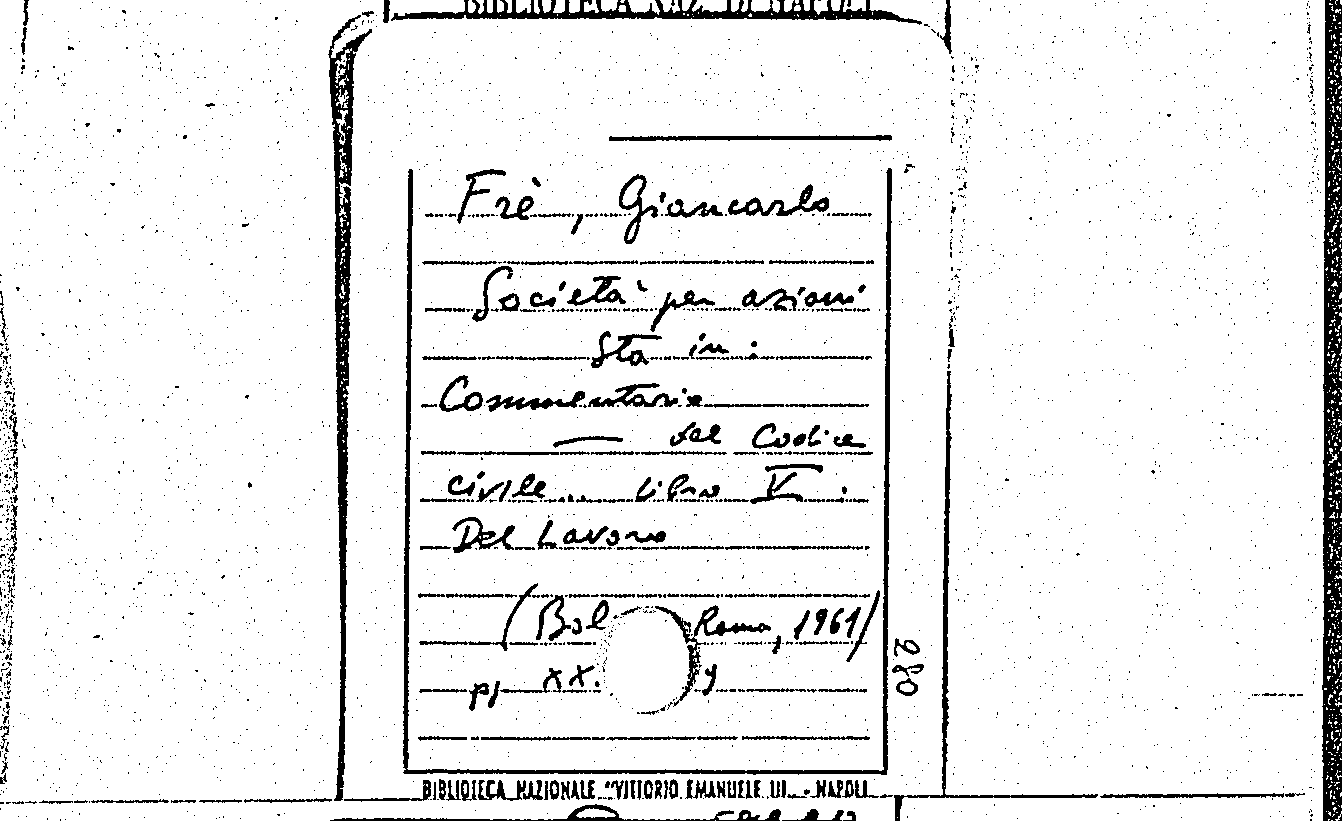 BIBLIOTECA NAZ. DI NAPOLI
Frè, Giancarlo
Società per azioni
Sta in:
Commentario
— del Codice
civile... Libro V.
Del Lavoro
(Bol Roma, 1961)
pp XX.
280
BIBLIOTECA NAZIONALE "VITTORIO EMANUELE III" - NAPOLI